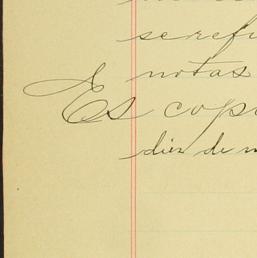 serefi
notas
Es copi
diez de m